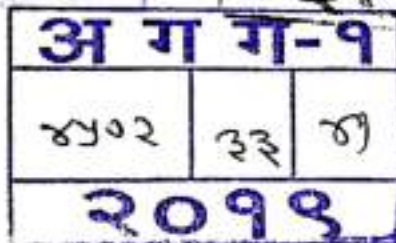 अ ग ग-१
४५०२ ३३ ४५
२०१९